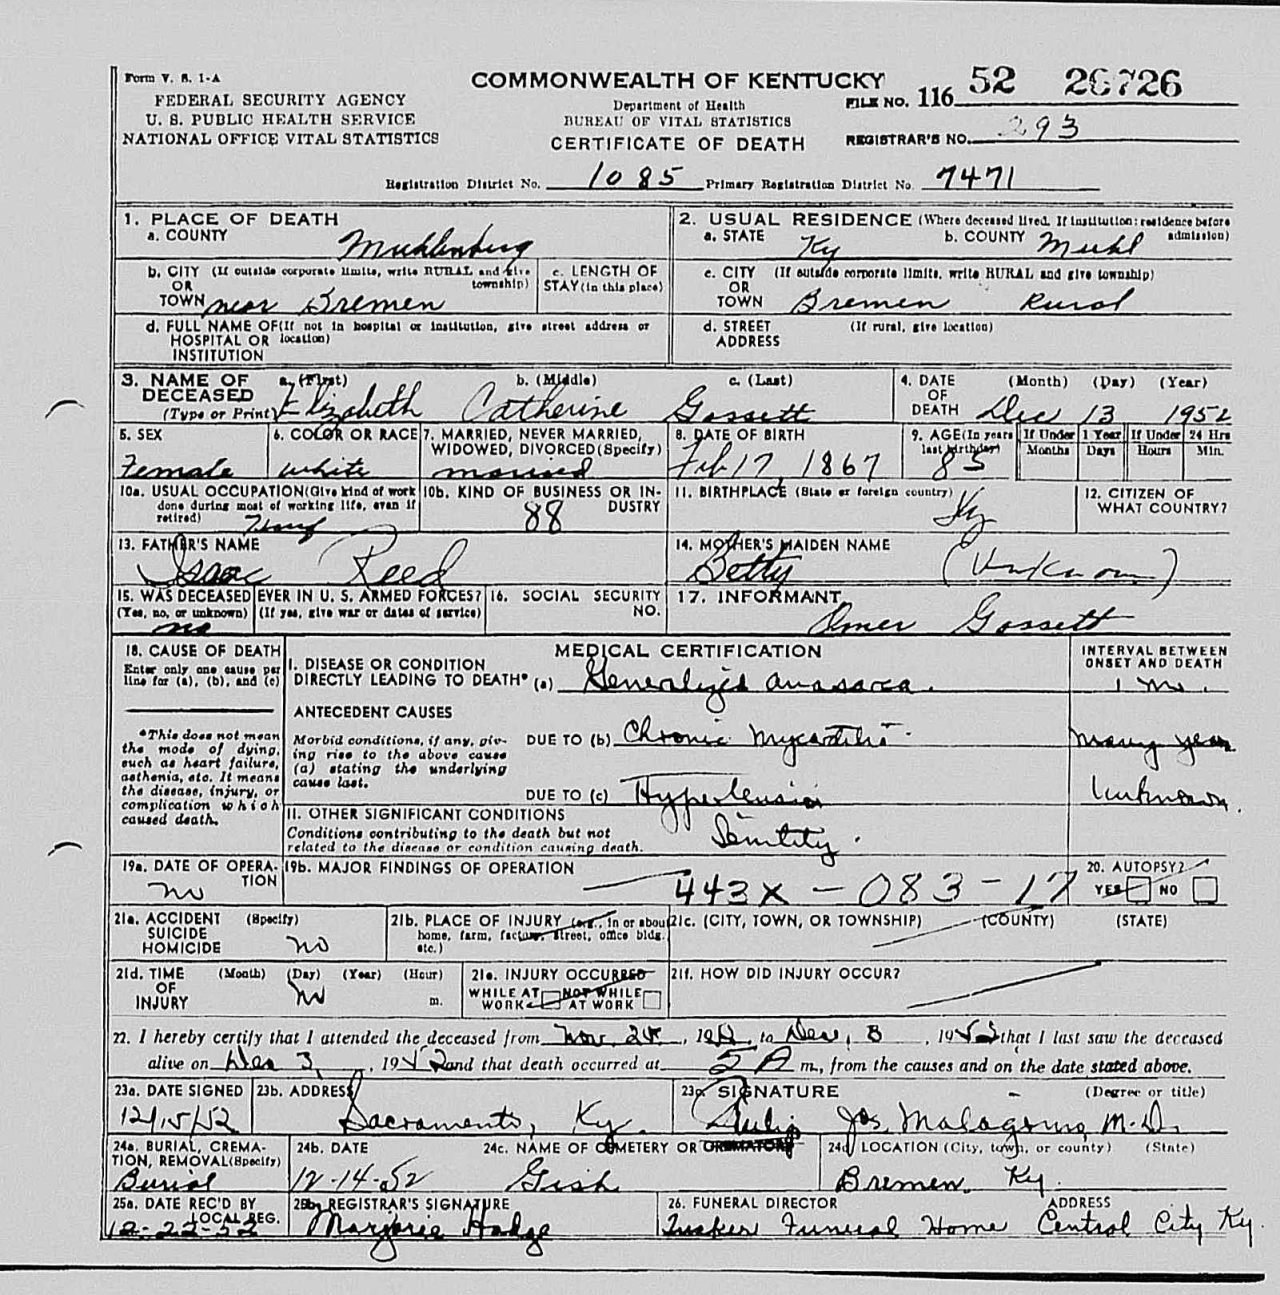 Form V. S. 1-A
FEDERAL SECURITY AGENCY
U. S. PUBLIC HEALTH SERVICE
NATIONAL OFFICE VITAL STATISTICS
COMMONWEALTH OF KENTUCKY
Department of Health
BUREAU OF VITAL STATISTICS
CERTIFICATE OF DEATH
FILE NO. 116 52 26726
REGISTRAR'S NO. 293
Registration District No. 1085 Primary Registration District No. 7471
1. PLACE OF DEATH
a. COUNTY Muhlenberg
b. CITY (If outside corporate limits, write RURAL and give township)
OR
TOWN near Bremen
c. LENGTH OF
STAY (in this place)
d. FULL NAME OF (If not in hospital or institution, give street address or location)
HOSPITAL OR
INSTITUTION
2. USUAL RESIDENCE (Where deceased lived. If institution: residence before admission)
a. STATE Ky b. COUNTY Muhl
c. CITY (If outside corporate limits, write RURAL and give township)
OR
TOWN Bremen Rural
d. STREET (If rural, give location)
ADDRESS
3. NAME OF DECEASED (Type or Print)
a. (First) b. (Middle) c. (Last)
Elizabeth Catherine Gossett
4. DATE OF DEATH (Month) (Day) (Year)
Dec 13 1952
5. SEX
Female
6. COLOR OR RACE
white
7. MARRIED, NEVER MARRIED, WIDOWED, DIVORCED (Specify)
married
8. DATE OF BIRTH
Feb 17, 1867
9. AGE (In years last birthday)
85
If Under 1 Year
Months Days
If Under 24 Hrs
Hours Min.
10a. USUAL OCCUPATION (Give kind of work done during most of working life, even if retired)
10b. KIND OF BUSINESS OR INDUSTRY
88
11. BIRTHPLACE (State or foreign country)
Ky
12. CITIZEN OF WHAT COUNTRY?
13. FATHER'S NAME
Isaac Reed
14. MOTHER'S MAIDEN NAME
Betty (Unknown)
15. WAS DECEASED EVER IN U. S. ARMED FORCES?
(Yes, no, or unknown) (If yes, give war or dates of service)
no
16. SOCIAL SECURITY NO.
17. INFORMANT
Omer Gossett
18. CAUSE OF DEATH
Enter only one cause per line for (a), (b), and (c)
*This does not mean the mode of dying, such as heart failure, asthenia, etc. It means the disease, injury, or complication which caused death.
MEDICAL CERTIFICATION
INTERVAL BETWEEN ONSET AND DEATH
I. DISEASE OR CONDITION DIRECTLY LEADING TO DEATH* (a) Generalized anasarca. 1 mo.
ANTECEDENT CAUSES
Morbid conditions, if any, giving rise to the above cause (a) stating the underlying cause last.
DUE TO (b) Chronic Mycarditis many years
DUE TO (c) Hypertension Unknown.
II. OTHER SIGNIFICANT CONDITIONS
Conditions contributing to the death but not related to the disease or condition causing death.
19a. DATE OF OPERATION
no
19b. MAJOR FINDINGS OF OPERATION
443X - 083 - 17
20. AUTOPSY?
YES NO
21a. ACCIDENT (Specify)
SUICIDE
HOMICIDE no
21b. PLACE OF INJURY (e.g., in or about home, farm, factory, street, office bldg. etc.)
21c. (CITY, TOWN, OR TOWNSHIP) (COUNTY) (STATE)
21d. TIME OF INJURY (Month) (Day) (Year) (Hour)
no m.
21e. INJURY OCCURRED
WHILE AT WORK NOT WHILE AT WORK
21f. HOW DID INJURY OCCUR?
22. I hereby certify that I attended the deceased from Nov. 24, 1952, to Dec, 8, 1952 that I last saw the deceased
alive on Dec 3, 1952 and that death occurred at 5 A m., from the causes and on the date stated above.
23a. DATE SIGNED
12/15/52
23b. ADDRESS
Sacramento, Ky.
23c. SIGNATURE (Degree or title)
Jos. M.D.
24a. BURIAL, CREMATION, REMOVAL (Specify)
Burial
24b. DATE
12-14-52
24c. NAME OF CEMETERY OR CREMATORY
Gish
24d. LOCATION (City, town, or county) (State)
Bremen, Ky.
25a. DATE REC'D BY LOCAL REG.
12-22-52
25b. REGISTRAR'S SIGNATURE
Marjorie Hodge
26. FUNERAL DIRECTOR ADDRESS
Tucker Funeral Home Central City Ky.